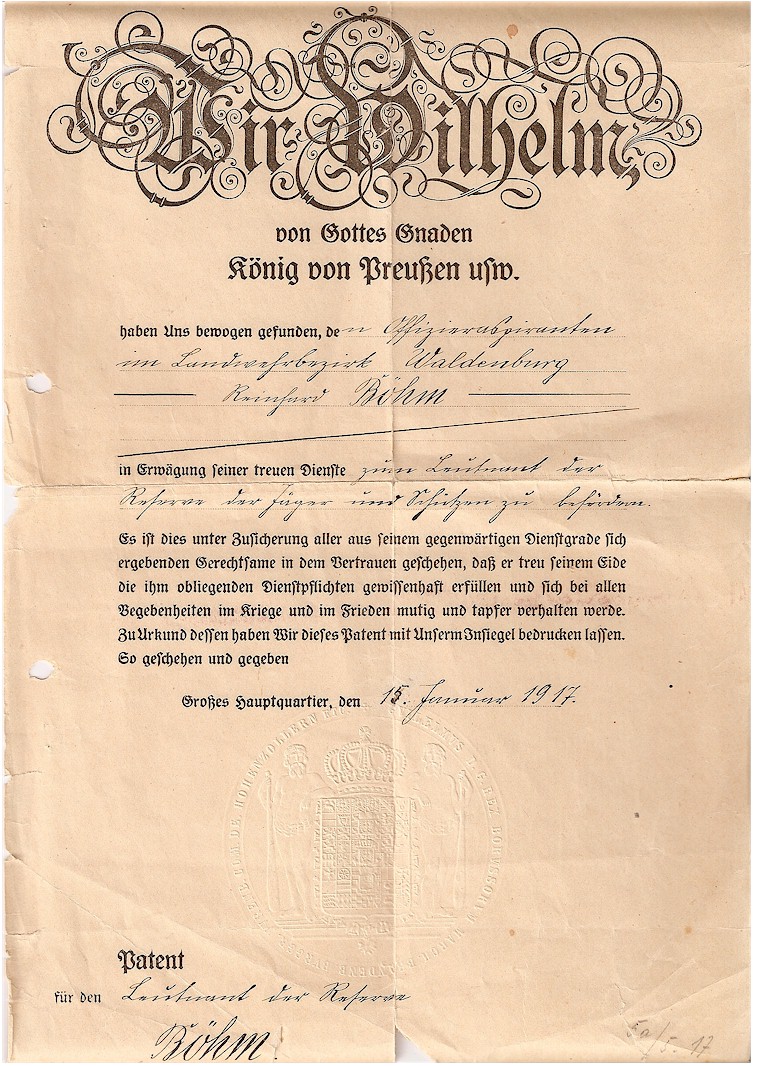 Wir Wilhelm,
von Gottes Gnaden
König von Preußen usw.
haben Uns bewogen gefunden, den Offizieraspiranten
im Landwehrbezirk Waldenburg
Reinhard Böhm
in Erwägung seiner treuen Dienste zum Leutnant der
Reserve der Jäger und Schützen zu befördern.
Es ist dies unter Zusicherung aller aus seinem gegenwärtigen Dienstgrade sich
ergebenden Gerechtsame in dem Vertrauen geschehen, daß er treu seinem Eide
die ihm obliegenden Dienstpflichten gewissenhaft erfüllen und sich bei allen
Begebenheiten im Kriege und im Frieden mutig und tapfer verhalten werde.
Zu Urkund dessen haben Wir dieses Patent mit Unserm Insiegel bedrucken lassen.
So geschehen und gegeben
Großes Hauptquartier, den 15. Januar 1917.
Patent
für den Leutnant der Reserve
Böhm.